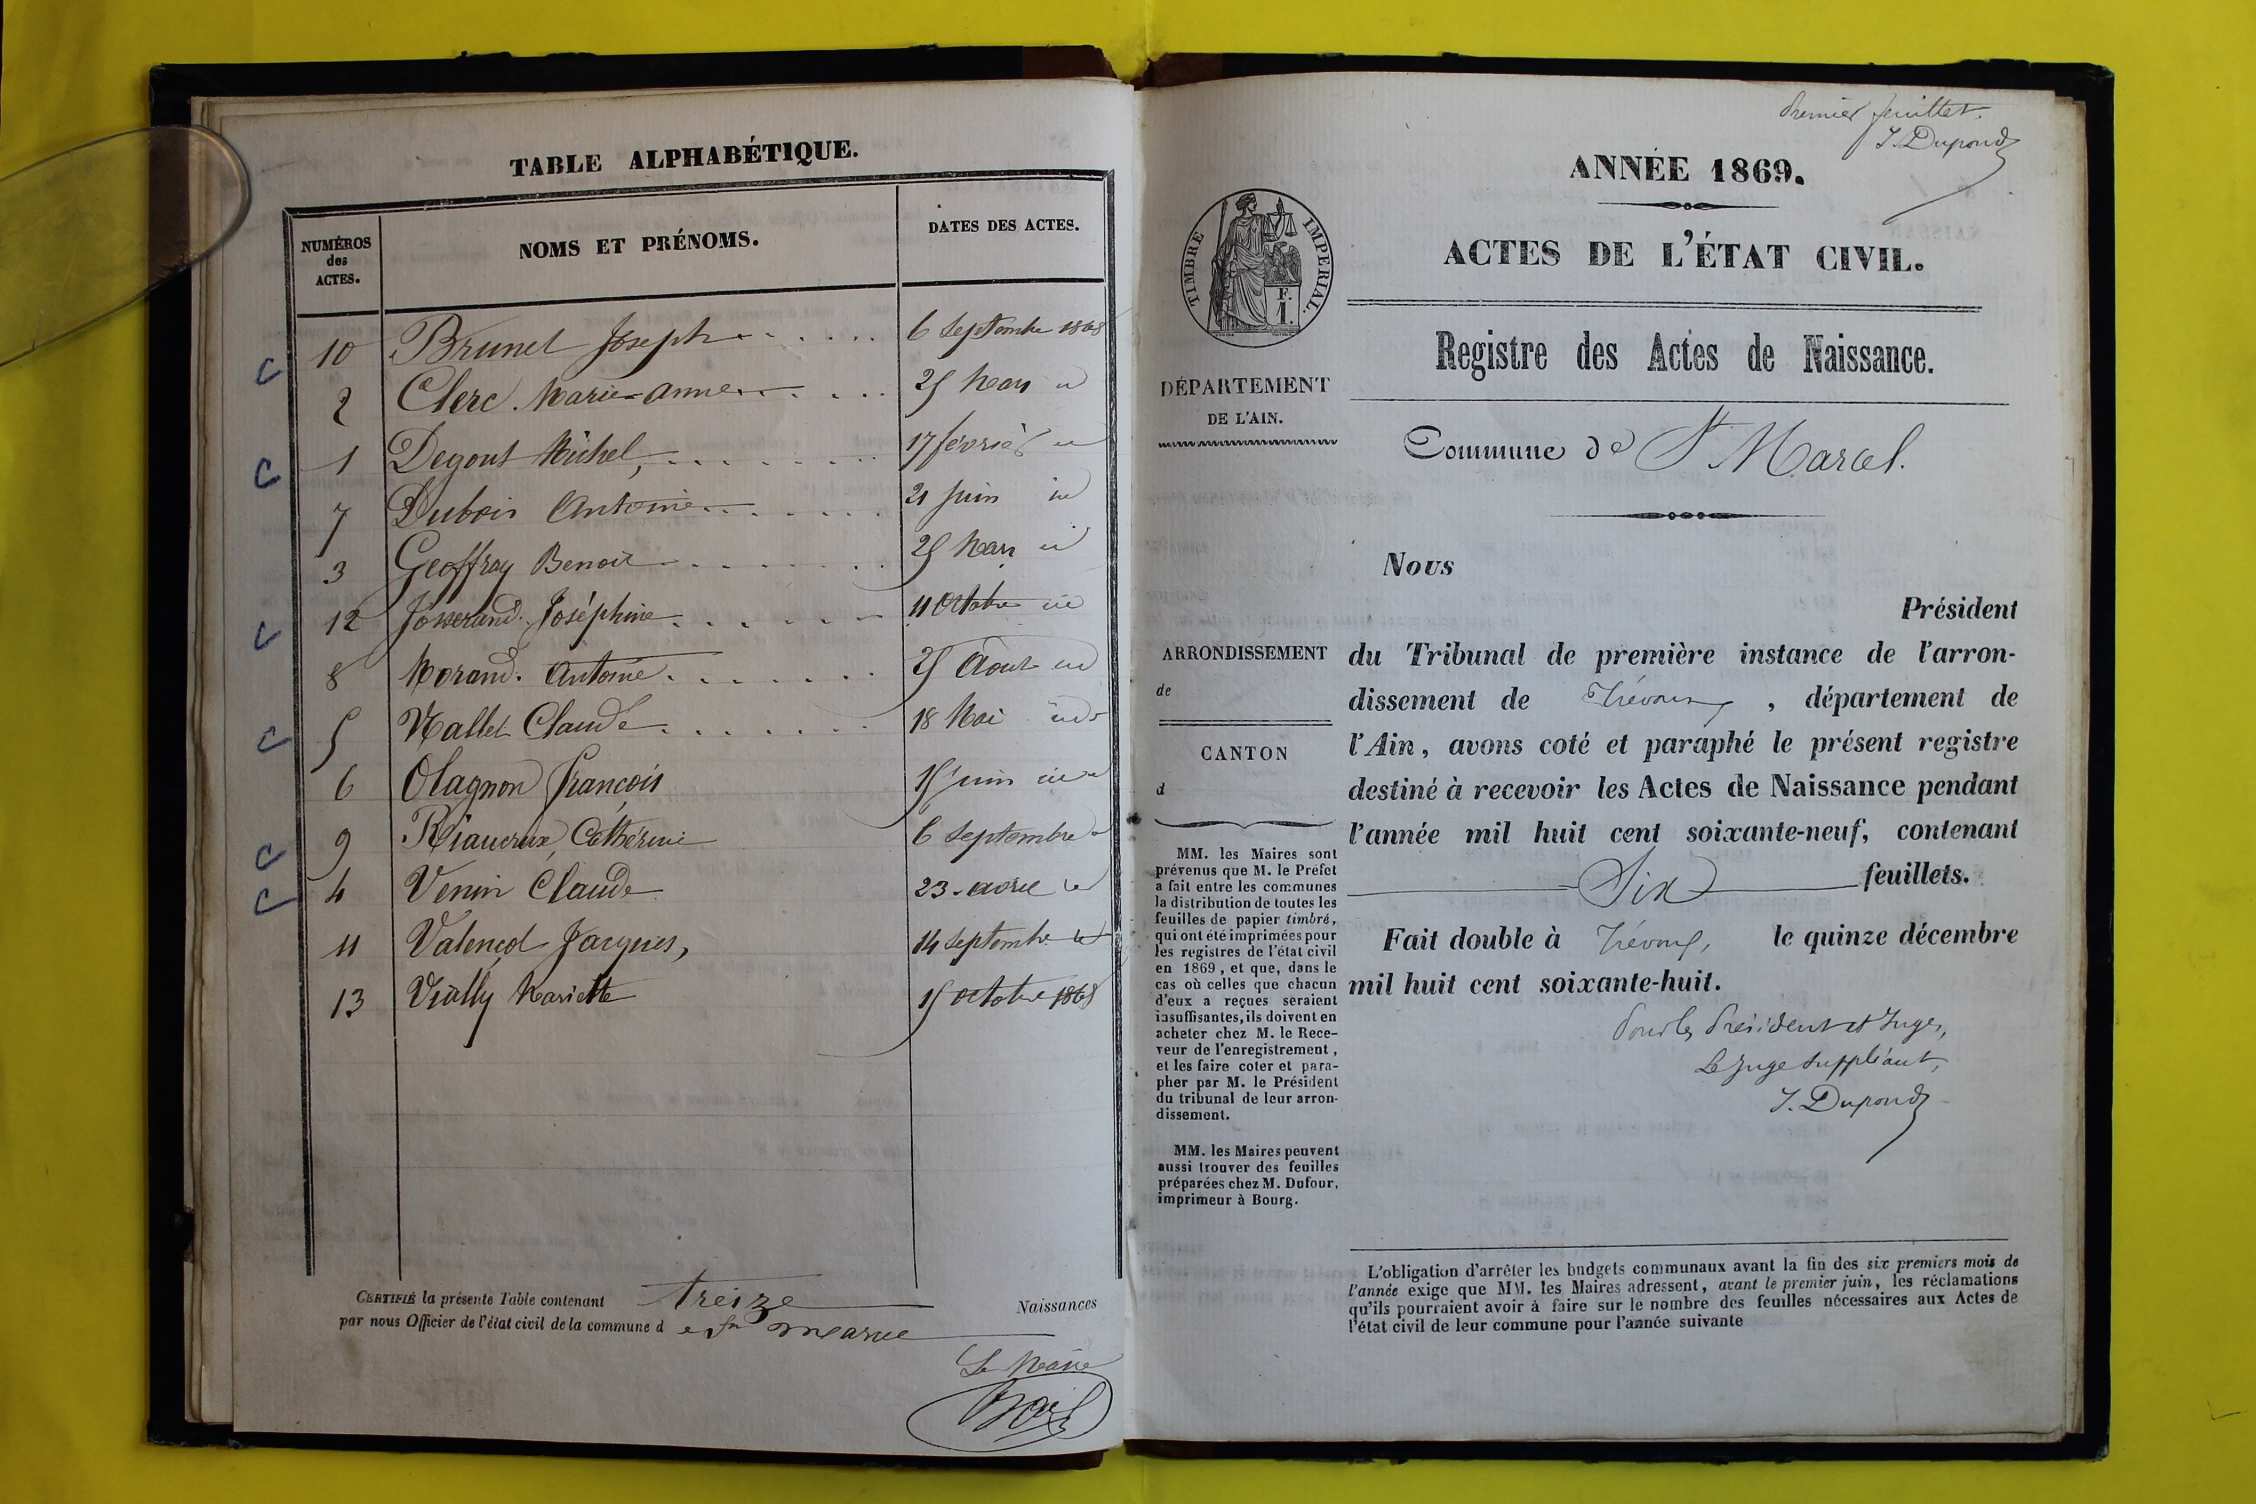 TABLE ALPHABÉTIQUE.
NUMÉROS des ACTES. NOMS ET PRÉNOMS. DATES DES ACTES.
10 Brunet Joseph 6 Septembre 1868
2 Clerc Marie-Anne 25 Mars id
1 Degout Michel, 17 février id
7 Dubois Antoine 21 Juin id
3 Geoffray Benoit 25 Mars id
12 Josserand Joséphine 11 Octobre id
8 Morand Antoine 25 Août id
5 Nallet Claude 18 Mai id
6 Olagnon François 15 Juin id
9 Riaucrux Cathérine 6 Septembre
4 Venin Claude 23 avril id
11 Valençot Jacques, 14 Septembre id
13 Vially Mariette 15 Octobre 1868
CERTIFIÉ la présente Table contenant treize Naissances
par nous Officier de l'état civil de la commune d e St Marcel
Le Maire
premier feuillet.
J. Dupond
ANNÉE 1869.
TIMBRE IMPERIAL.
F.
1.
ACTES DE L'ÉTAT CIVIL.
Registre des Actes de Naissance.
DÉPARTEMENT
DE L'AIN.
Commune de St Marcel.
Nous
Président
du Tribunal de première instance de l'arron-
dissement de Trévoux, département de
l'Ain, avons coté et paraphé le présent registre
destiné à recevoir les Actes de Naissance pendant
l'année mil huit cent soixante-neuf, contenant
Six feuillets.
Fait double à Trévoux, le quinze décembre
mil huit cent soixante-huit.
Pour les Président et Juges,
Le Juge Suppléant,
J. Dupond
ARRONDISSEMENT
de
CANTON
d
MM. les Maires sont
prévenus que M. le Préfet
a fait entre les communes
la distribution de toutes les
feuilles de papier timbré,
qui ont été imprimées pour
les registres de l'état civil
en 1869, et que, dans le
cas où celles que chacun
d'eux a reçues seraient
insuffisantes, ils doivent en
acheter chez M. le Rece-
veur de l'enregistrement,
et les faire coter et para-
pher par M. le Président
du tribunal de leur arron-
dissement.
MM. les Maires peuvent
aussi trouver des feuilles
préparées chez M. Dufour,
imprimeur à Bourg.
L'obligation d'arrêter les budgets communaux avant la fin des six premiers mois de
l'année exige que MM. les Maires adressent, avant le premier juin, les réclamations
qu'ils pourraient avoir à faire sur le nombre des feuilles nécessaires aux Actes de
l'état civil de leur commune pour l'année suivante